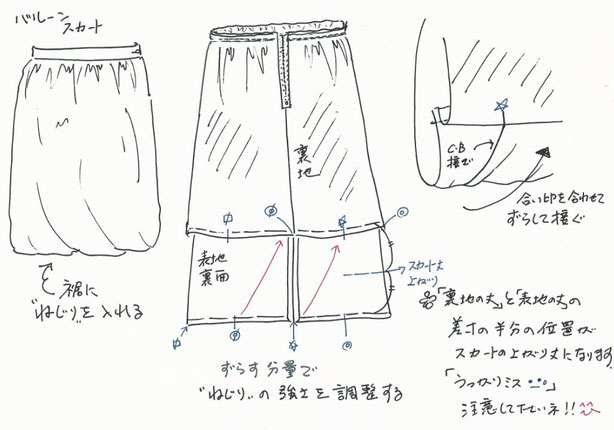 バルーン
スカート
裾に
"ねじり"を入れる
裏地
表地
裏面
スカート丈
上がり
ずらす分量で
"ねじり"の強さを調整する
C・B
接ぎ
合い印を合わせて
ずらして接ぐ
「裏地の丈」と「表地の丈」の
差寸の半分の位置が
スカートの上がり丈になります。
「うっかりミス」
注意して下さいネ!!